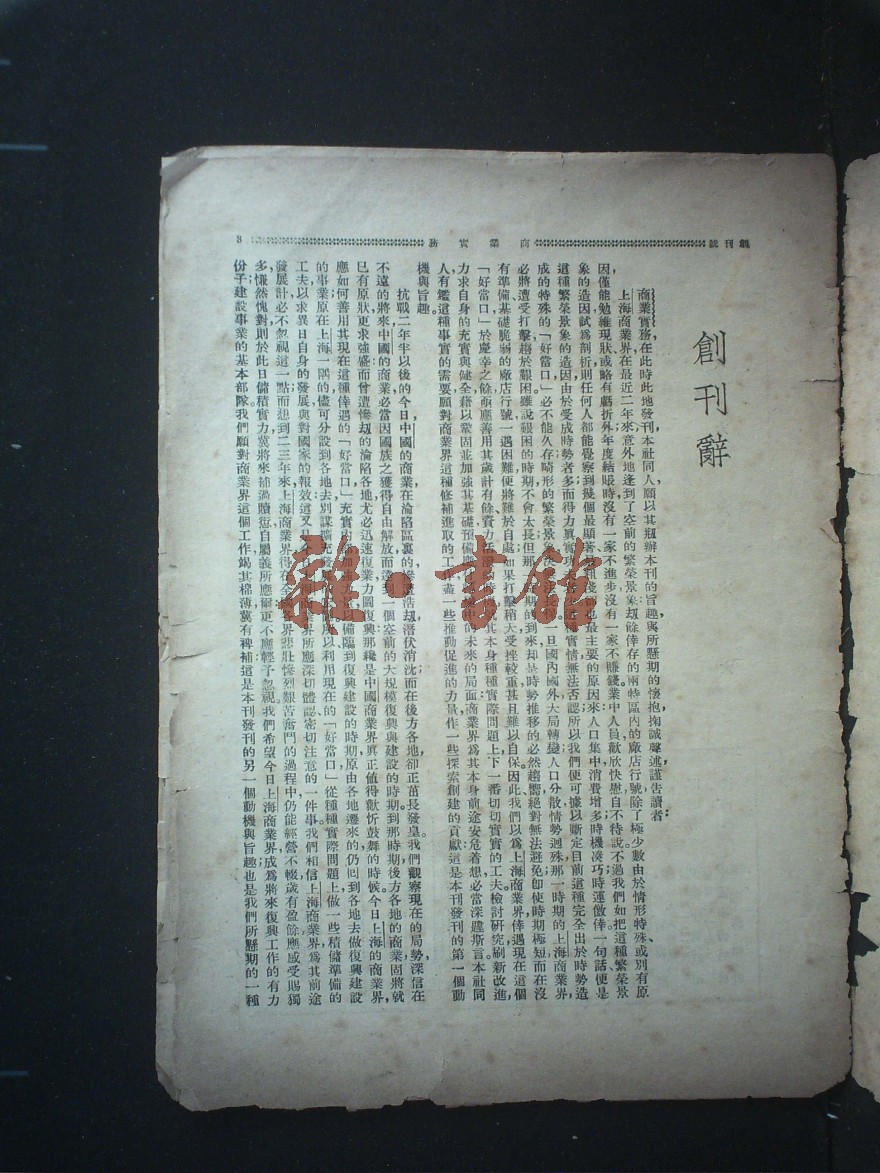 創刊號
商業實務
3
創刊辭
商業實務,在此時此地發刊本社同人,願以其瓶辦本刊的旨趣,與所懸期的懷抱,掬誠縷述,謹告讀者:
上海商業界在最近二年來,意外地逢到了空前的繁榮景象:刧餘倖存的兩特區內的廠店行號,除了極少數由於情形特殊、或別有原
因,僅能勉維現狀,或略有虧折外,年度結賬時,沒有一家不進步,沒有一家不賺錢,業中人員,歡欣快慰,自不待說。不過我們如把這種繁榮景
象的造因,試爲剖析,則任何人都能覺察到幾個最顯著最粗淺而也最主要的原因來:人口集中,消費增多,時機湊巧,時運僥倖。一句話便是
這種繁榮景象的造因,由於受成時勢者多,而得力真實功夫者少,這種實情,無法否認,所以我們便可據以斷定,目前這種完全出於時勢造
成的特殊的「好當口」,必不能久存,畸形的繁榮景象,決難長此。一旦國內國外大局轉變,人口分散,情勢迥殊,那一時期的上海商業界,
必將遭受打擊,趨於艱困。雖說艱困的時期不會太長,但那一時期的到來,却是時勢推移的必然趨嚮,絕對無法避免,卽使時期極短,而在沒
有準備、基礎脆弱的廠店行號,一遇困難,便將難於自處,如果打擊稍大,受挫較重,甚且難以自保。因此,我們以爲上海商業界,倖遇現在這個
「好當口」,於慶幸之餘,頭應善用其歲計有餘,資力活潑 其本身種種實際問題上,下一番切切實實的工夫,檢討研究,刷新改進,
力求自身的充實與健全,藉以鞏固並加強其基礎,預備應 中的未來的局面;商業界爲其本身前途安危着想,必當深韙斯言。本社同
人有鑑這種事實的需要,願對商業界這種修補進取的工作,盡一些推動促進的力量,作一些探索創建的貢獻,這是本刊發刊的第一個動
機與旨趣。
抗戰二年半以後的今日,中國的商業,在淪陷區裏的,慘遭浩刼,潛伏消沈,而在後方各地,卻正茁長發皇。我們觀察現在的局勢,深信在
不遠的將來,中國的商業,必當因國族之獲得自由解放,而達到一個空前的大規模復興與建設的時期。到那時期,後方各地的商業,固將就
已有原狀,更求強盛,而曾遭慘刼的淪陷各地,尤必迅速復業,力圖復興,那纔是中國商業界真正値得歡忻鼓舞的時候。今日上海的商業界,
應如何善用其現在這種倖遇的「好當口」,充實 加強 以備臨到復興建設的時期,原由各地遷來的,仍囘到各地去做復興建設
的事業,原在上海一隅的,儘可分設到各地去,別謀擴充發展 所以利用現在的「好當口」,從種種實際問題上,做一些積儲準備的
工夫,以求異日自身的發展,與對國家的報效,這又是今日 業界所應深切體認、密切注意的一件事。我們相信上海商業界,爲其前途
發展計,必不忽視這一點,而想到二三年來,上海商業界得在全國各界悲壯慘烈艱苦奮鬥的過程中,仍能經營不輟,歲有盈餘,應感受賜獨
多,慊然愧對,則於此日儲積實力,冀將來補過贖愆,自屬義所應爾,更不應輕予忽視。我們希望今日上海商業界,成爲將來復興工作的有力
份子,建設事業的基本部隊。我們願對商業界這個工作,竭其棉薄,冀有裨補,這是本刊發刊的另一個動機與旨趣,也是我們所懸期的一種
雜·書館